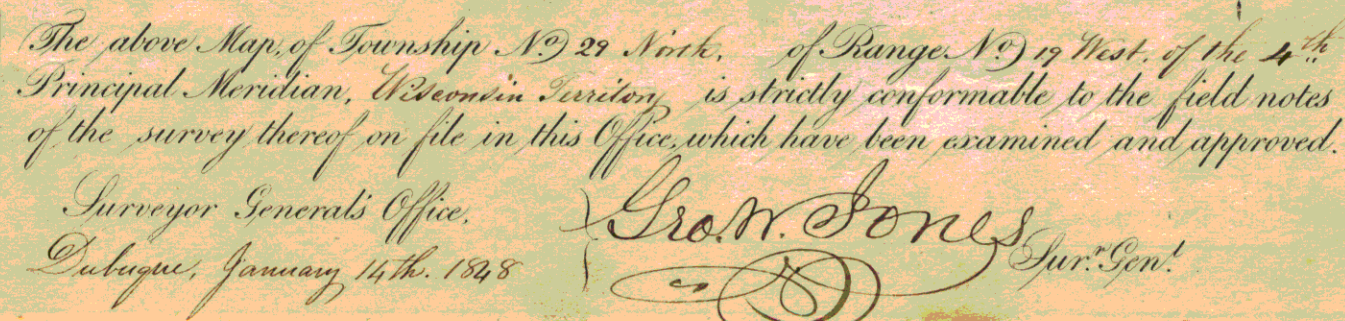 The above Map, of Township No. 29 North, of Range No. 19 West, of the 4th
Principal Meridian, Wisconsin Territory is strictly conformable to the field notes
of the survey thereof on file in this Office, which have been examined and approved.
Surveyor General's Office,
Dubuque, January 14th. 1848
Geo. W. Jones
Surr. Genl.